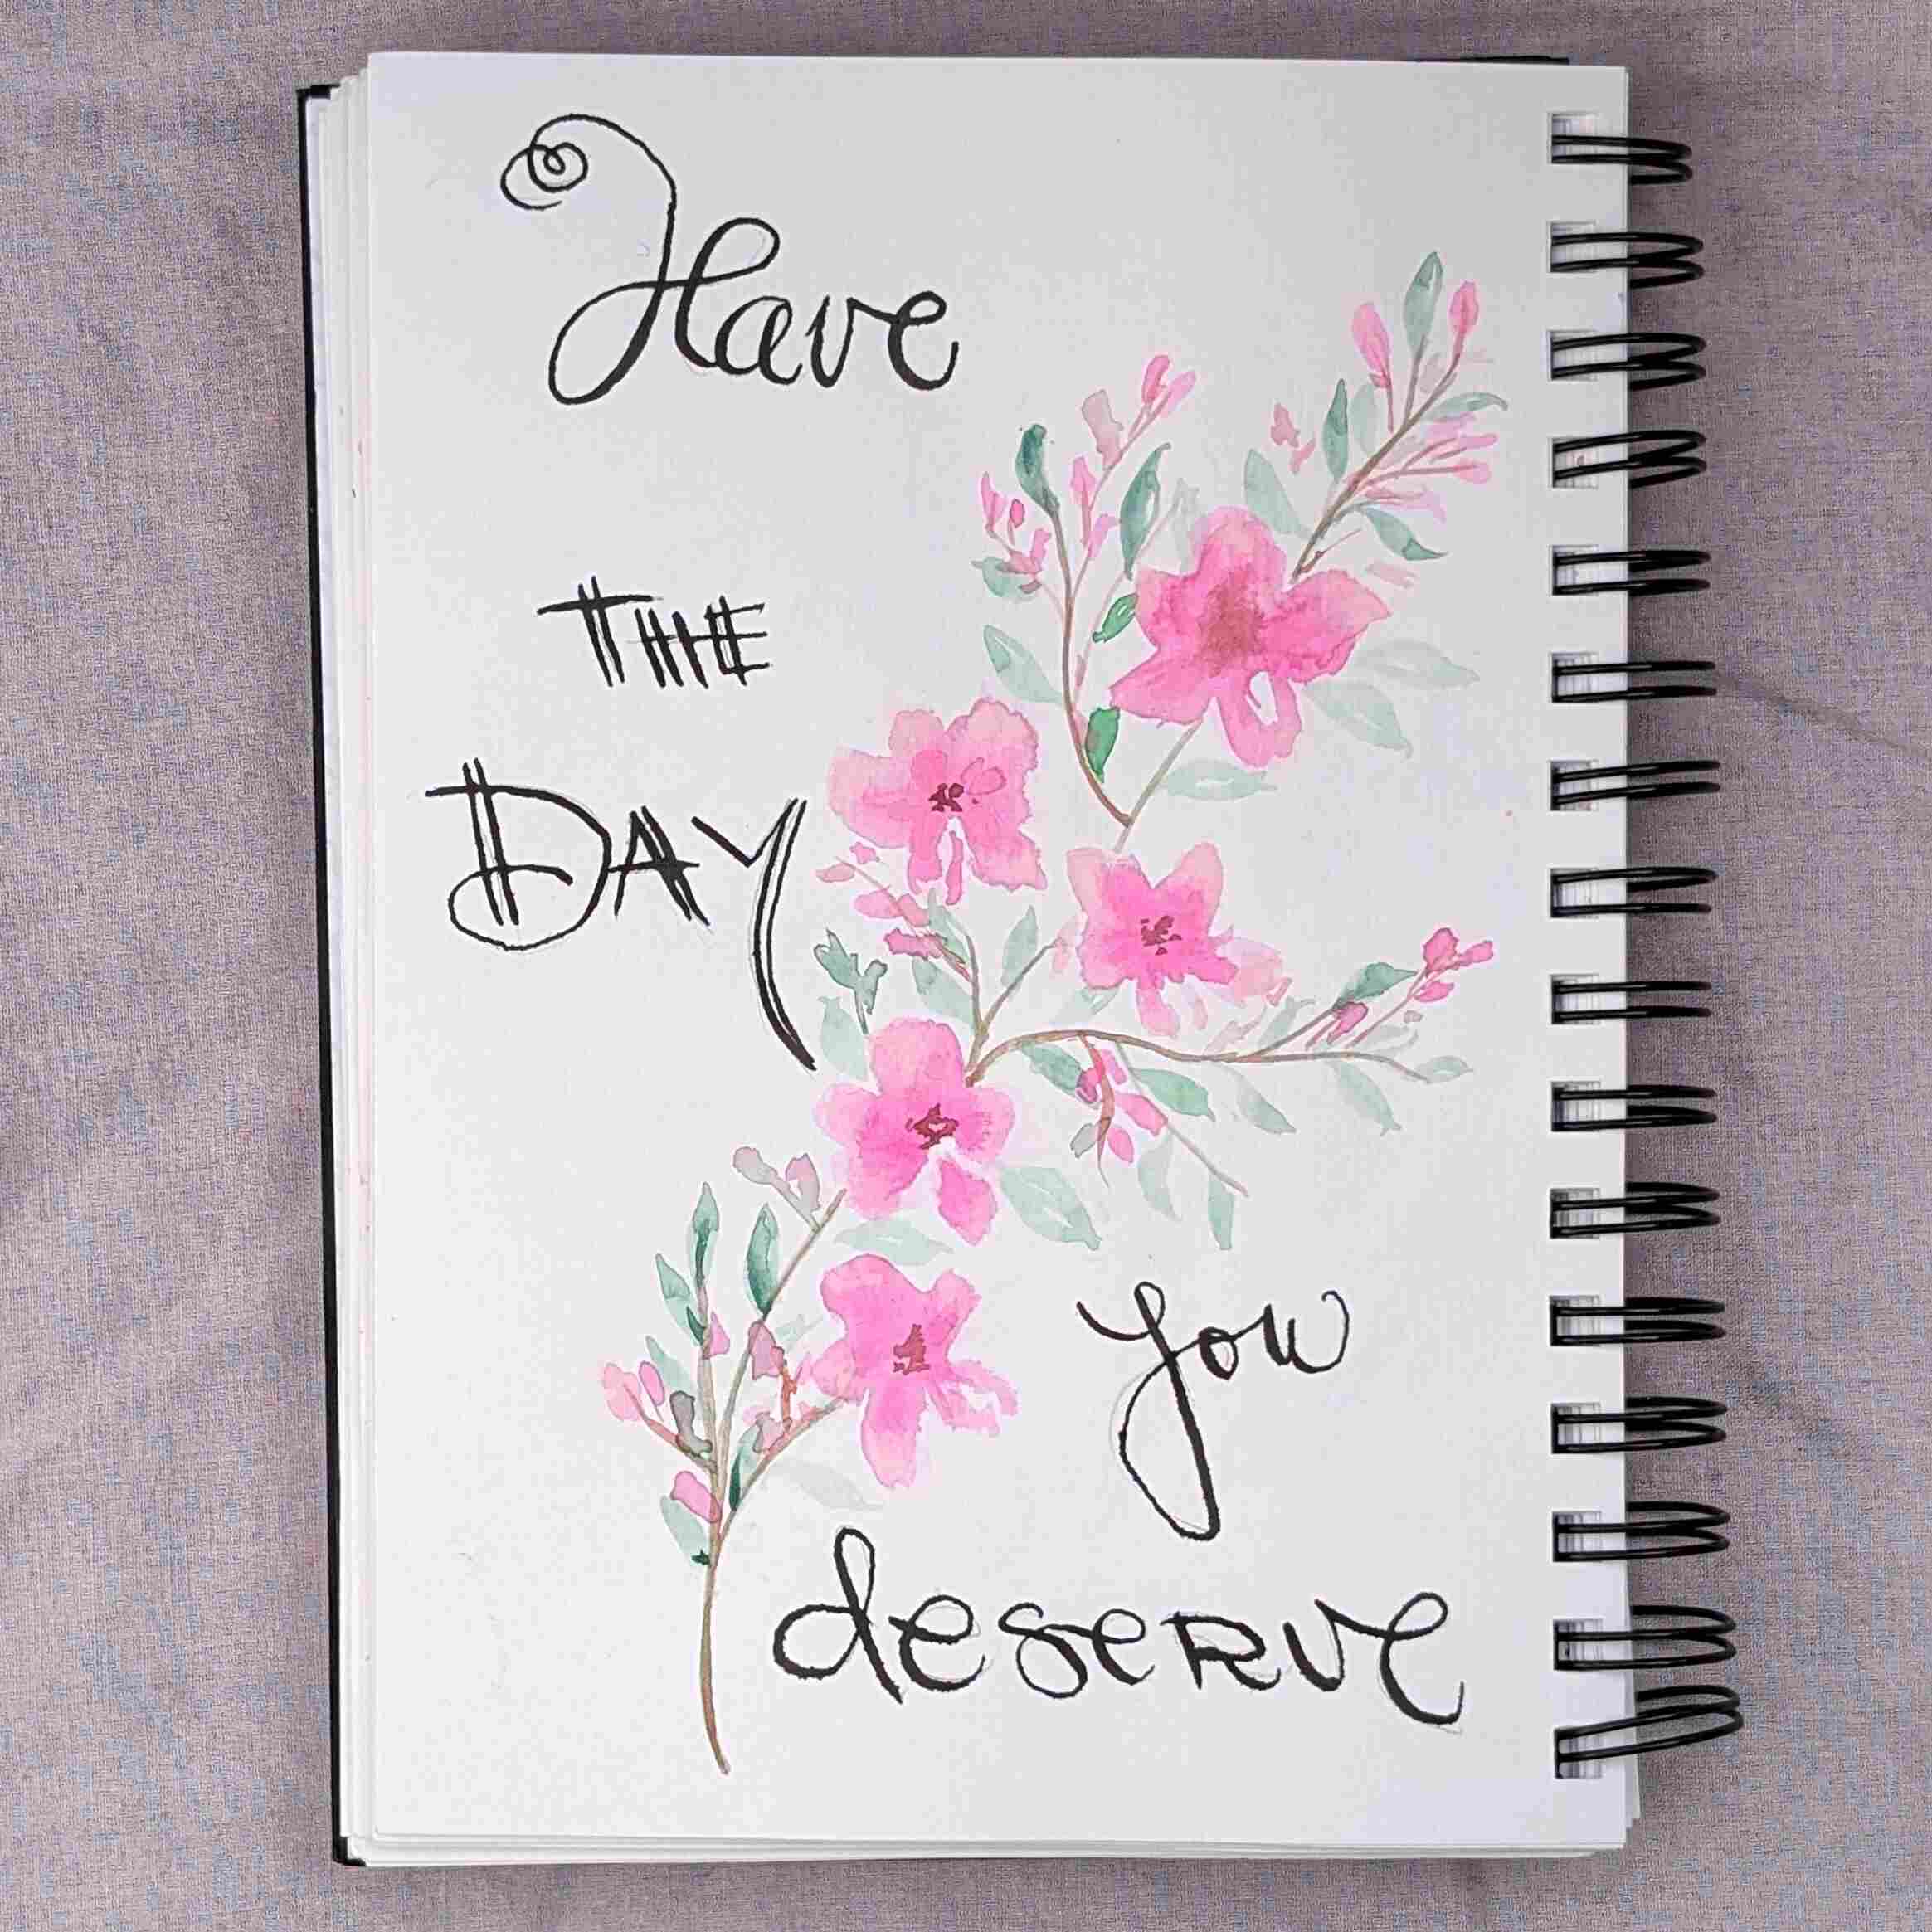 Have
THE
DAY
you
deserve